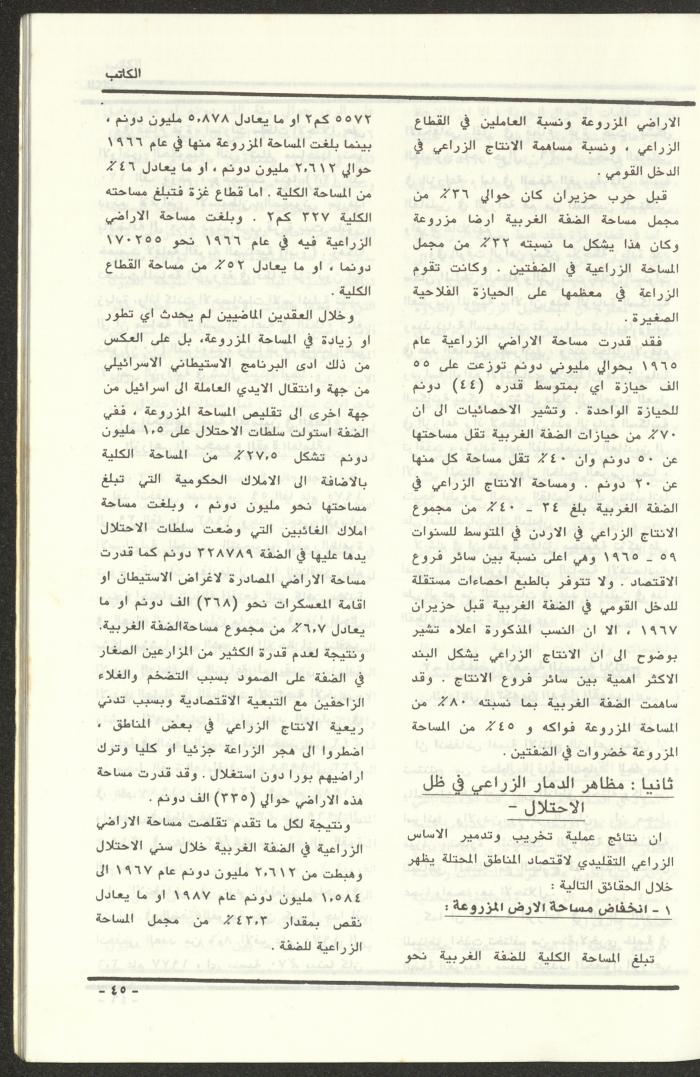 الكاتب
الاراضي المزروعة ونسبة العاملين في القطاع
الزراعي ، ونسبة مساهمة الانتاج الزراعي في
الدخل القومي .
قبل حرب حزيران كان حوالي ٣٦٪ من
مجمل مساحة الضفة الغربية ارضا مزروعة
وكان هذا يشكل ما نسبته ٣٢٪ من مجمل
المساحة الزراعية في الضفتين . وكانت تقوم
الزراعة في معظمها على الحيازة الفلاحية
الصغيرة .
فقد قدرت مساحة الاراضي الزراعية عام
١٩٦٥ بحوالي مليوني دونم توزعت على ٥٥
الف حيازة اي بمتوسط قدره (٤٤) دونم
للحيازة الواحدة . وتشير الاحصائيات الى ان
٧٠٪ من حيازات الضفة الغربية تقل مساحتها
عن ٥٠ دونم وان ٤٠٪ تقل مساحة كل منها
عن ٢٠ دونم . ومساحة الانتاج الزراعي في
الضفة الغربية بلغ ٣٤ - ٤٠٪ من مجموع
الانتاج الزراعي في الاردن في المتوسط للسنوات
٥٩ - ١٩٦٥ وهي اعلى نسبة بين سائر فروع
الاقتصاد . ولا تتوفر بالطبع احصاءات مستقلة
للدخل القومي في الضفة الغربية قبل حزيران
١٩٦٧ ، الا ان النسب المذكورة اعلاه تشير
بوضوح الى ان الانتاج الزراعي يشكل البند
الاكثر اهمية بين سائر فروع الانتاج . وقد
ساهمت الضفة الغربية بما نسبته ٨٠٪ من
المساحة المزروعة فواكه و ٤٥٪ من المساحة
المزروعة خضروات في الضفتين .
ثانيا : مظاهر الدمار الزراعي في ظل
الاحتلال -
ان نتائج عملية تخريب وتدمير الاساس
الزراعي التقليدي لاقتصاد المناطق المحتلة يظهر
خلال الحقائق التالية :
١ - انخفاض مساحة الارض المزروعة :
تبلغ المساحة الكلية للضفة الغربية نحو
٥٥٧٢ كم٢ او ما يعادل ٥،٨٧٨ مليون دونم ،
بينما بلغت المساحة المزروعة منها في عام ١٩٦٦
حوالي ٢،٦١٢ مليون دونم ، او ما يعادل ٤٦٪
من المساحة الكلية . اما قطاع غزة فتبلغ مساحته
الكلية ٣٢٧ كم٢ . وبلغت مساحة الاراضي
الزراعية فيه في عام ١٩٦٦ نحو ١٧٠٢٥٥
دونما ، او ما يعادل ٥٢٪ من مساحة القطاع
الكلية .
وخلال العقدين الماضيين لم يحدث اي تطور
او زيادة في المساحة المزروعة، بل على العكس
من ذلك ادى البرنامج الاستيطاني الاسرائيلي
من جهة وانتقال الايدي العاملة الى اسرائيل من
جهة اخرى الى تقليص المساحة المزروعة ، ففي
الضفة استولت سلطات الاحتلال على ١،٥ مليون
دونم تشكل ٢٧،٥٪ من المساحة الكلية
بالاضافة الى الاملاك الحكومية التي تبلغ
مساحتها نحو مليون دونم ، وبلغت مساحة
املاك الغائبين التي وضعت سلطات الاحتلال
يدها عليها في الضفة ٣٢٨٧٨٩ دونم كما قدرت
مساحة الاراضي المصادرة لاغراض الاستيطان او
اقامة المعسكرات نحو (٣٦٨) الف دونم او ما
يعادل ٦،٧٪ من مجموع مساحةالضفة الغربية.
ونتيجة لعدم قدرة الكثير من المزارعين الصغار
في الضفة على الصمود بسبب التضخم والغلاء
الزاحفين مع التبعية الاقتصادية وبسبب تدني
ريعية الانتاج الزراعي في بعض المناطق ،
اضطروا الى هجر الزراعة جزئيا او كليا وترك
اراضيهم بورا دون استغلال . وقد قدرت مساحة
هذه الاراضي حوالي (٣٣٥) الف دونم .
ونتيجة لكل ما تقدم تقلصت مساحة الاراضي
الزراعية في الضفة الغربية خلال سني الاحتلال
وهبطت من ٢،٦١٢ مليون دونم عام ١٩٦٧ الى
١،٥٨٤ مليون دونم عام ١٩٨٧ او ما يعادل
نقص بمقدار ٤٣،٣٪ من مجمل المساحة
الزراعية للضفة .
- ٤٥ -